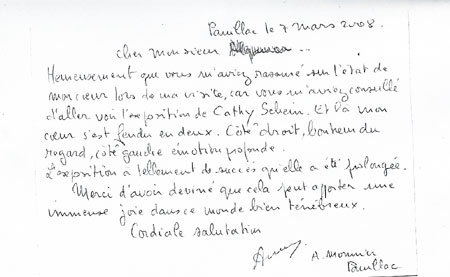 Pauillac le 7 mars 2008.
Cher Monsieur
Heureusement que vous m'aviez rassuré sur l'état de
mon cœur lors de ma visite, car vous m'aviez conseillé
d'aller voir l'exposition de Cathy Schein. Et là mon
cœur s'est fendu en deux. Côté droit, bonheur du
regard, côté gauche émotion profonde.
L'exposition a tellement de succès qu'elle a été prolongée.
Merci d'avoir deviné que cela peut apporter une
immense joie dans ce monde bien ténébreux.
Cordiale salutation
A. Mounier
Pauillac